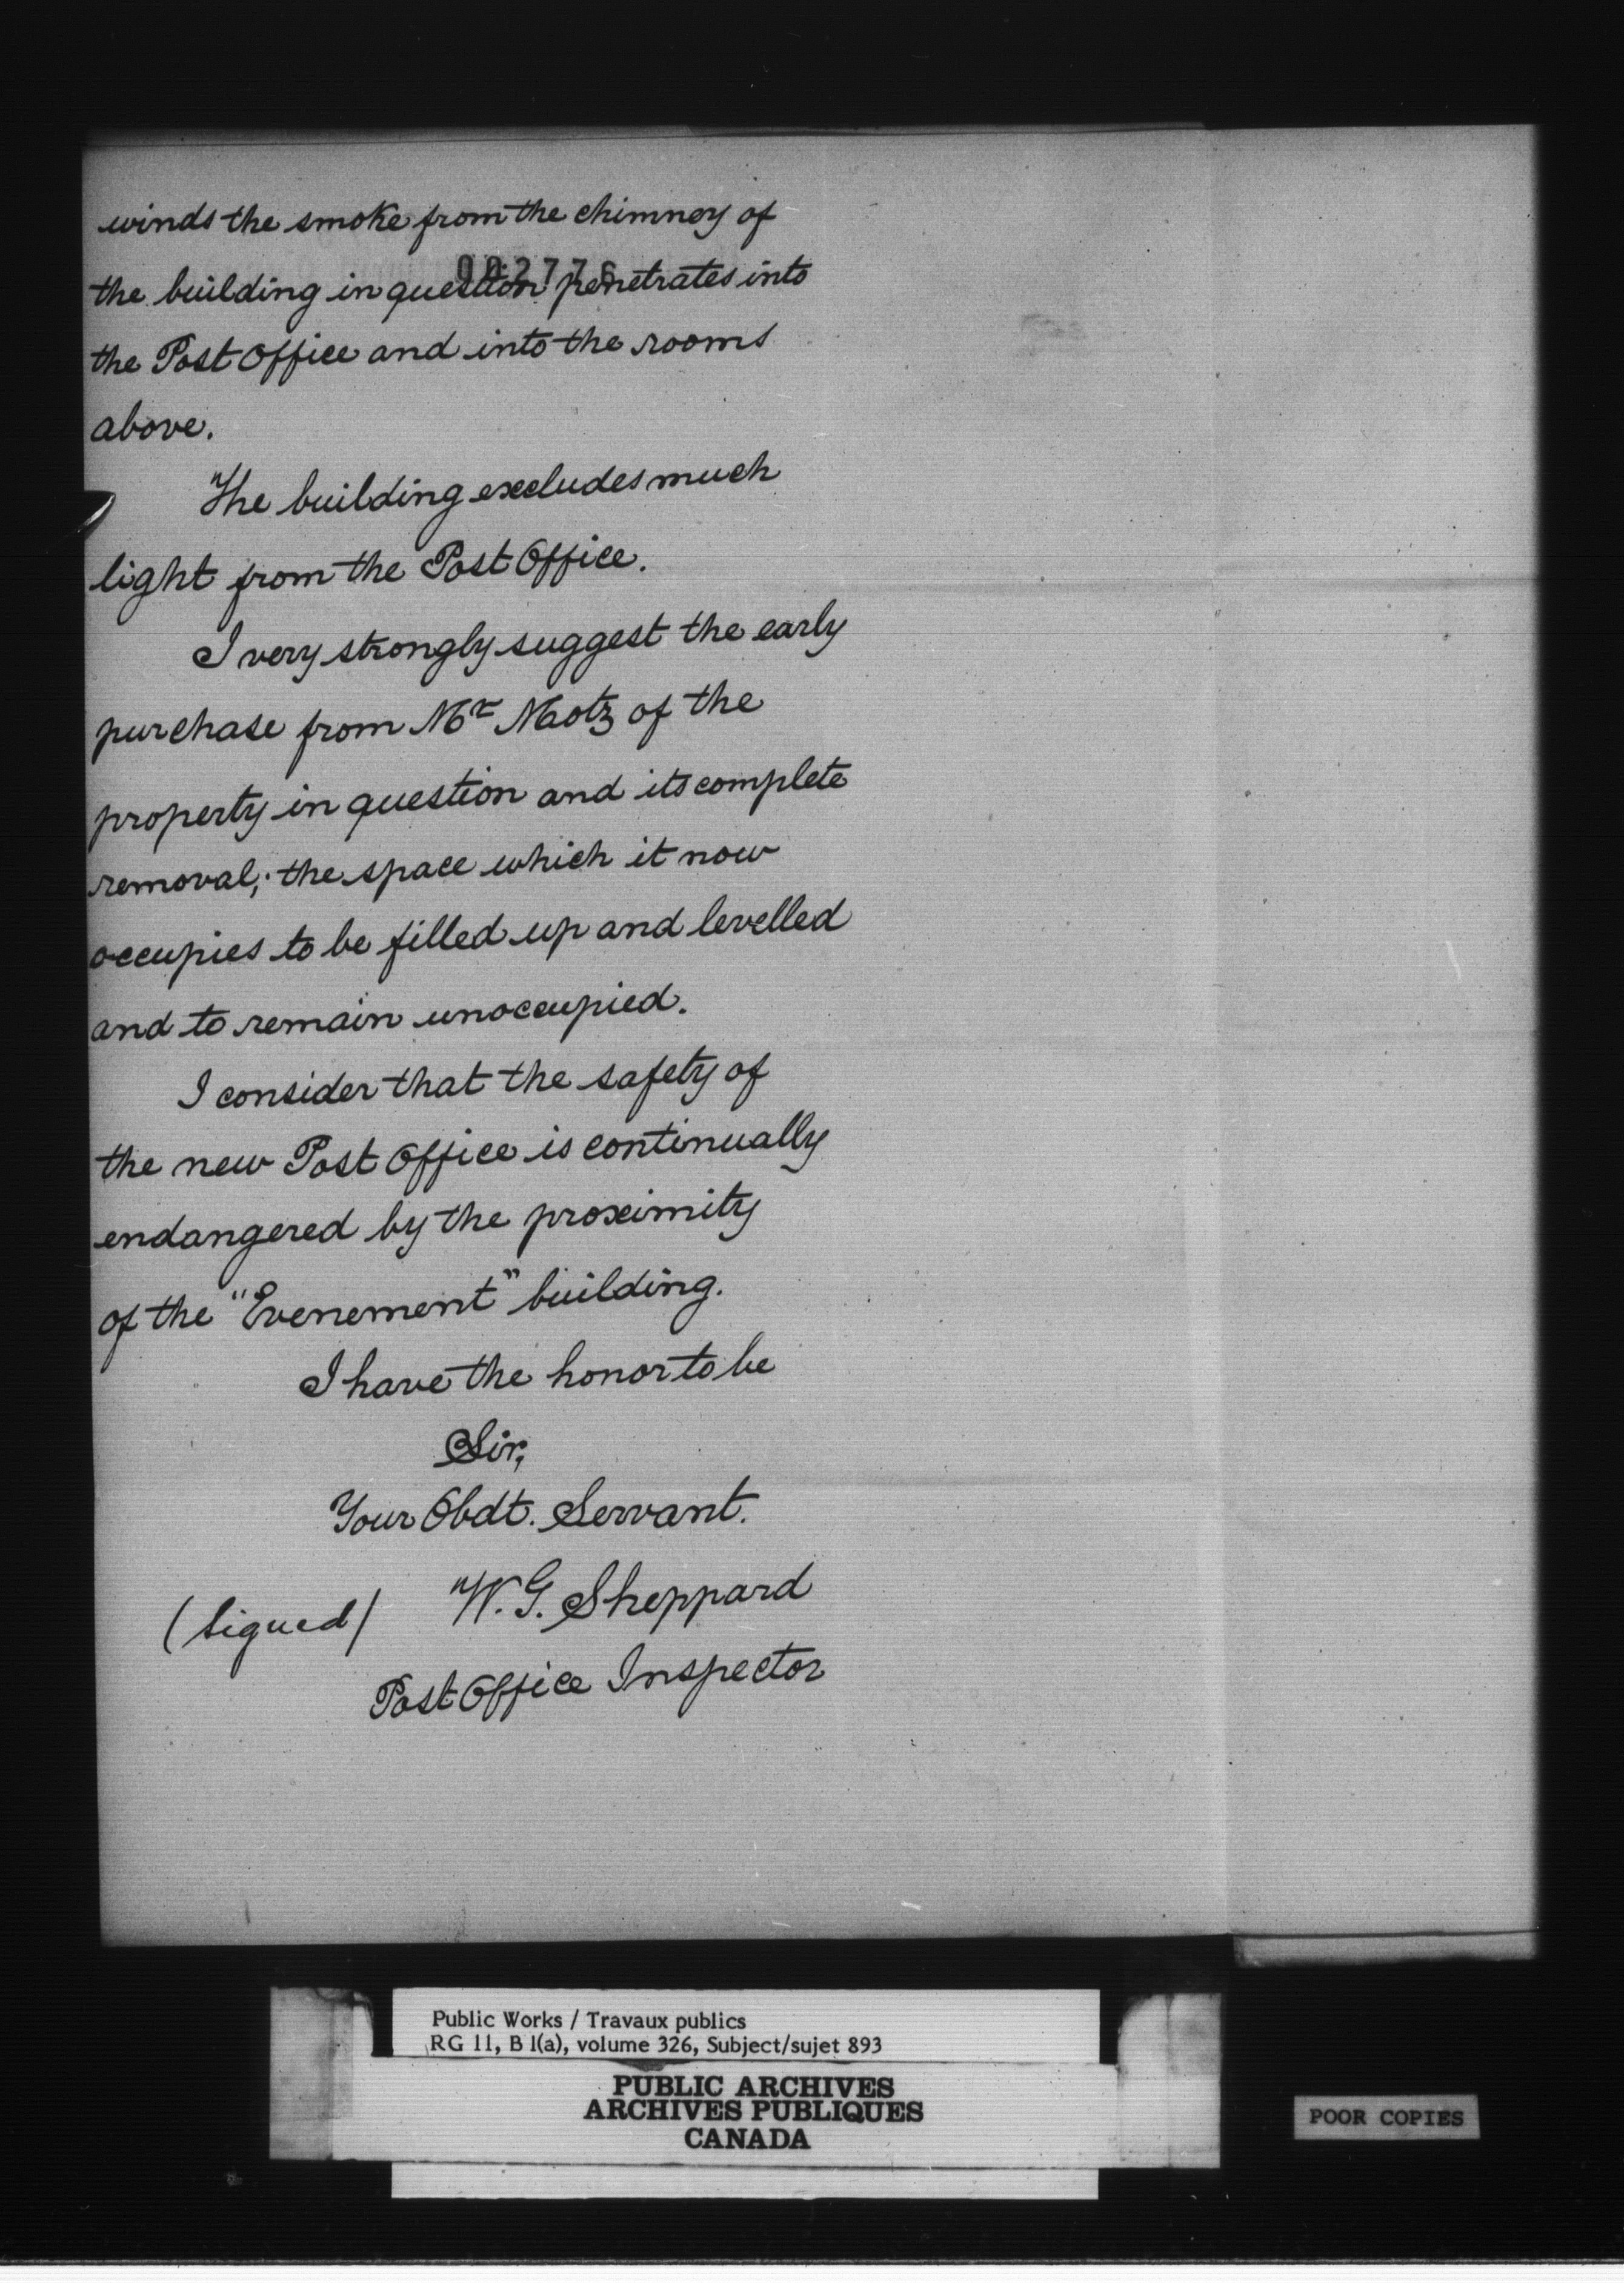 winds the smoke from the chimney of
002776
the building in question penetrates into
the Post Office and into the rooms
above.
The building excludes much
light from the Post Office.
I very strongly suggest the early
purchase from Mr Motz of the
property in question and its complete
removal; the space which it now
occupies to be filled up and levelled
and to remain unoccupied.
I consider that the safety of
the new Post Office is continually
endangered by the proximity
of the "Evenement" building.
I have the honor to be
Sir,
Your Obdt. Servant.
(Signed) W. G. Sheppard
Post Office Inspector
Public Works / Travaux publics
RG 11, B 1(a), volume 326, Subject/sujet 893
PUBLIC ARCHIVES
ARCHIVES PUBLIQUES
CANADA
POOR COPIES